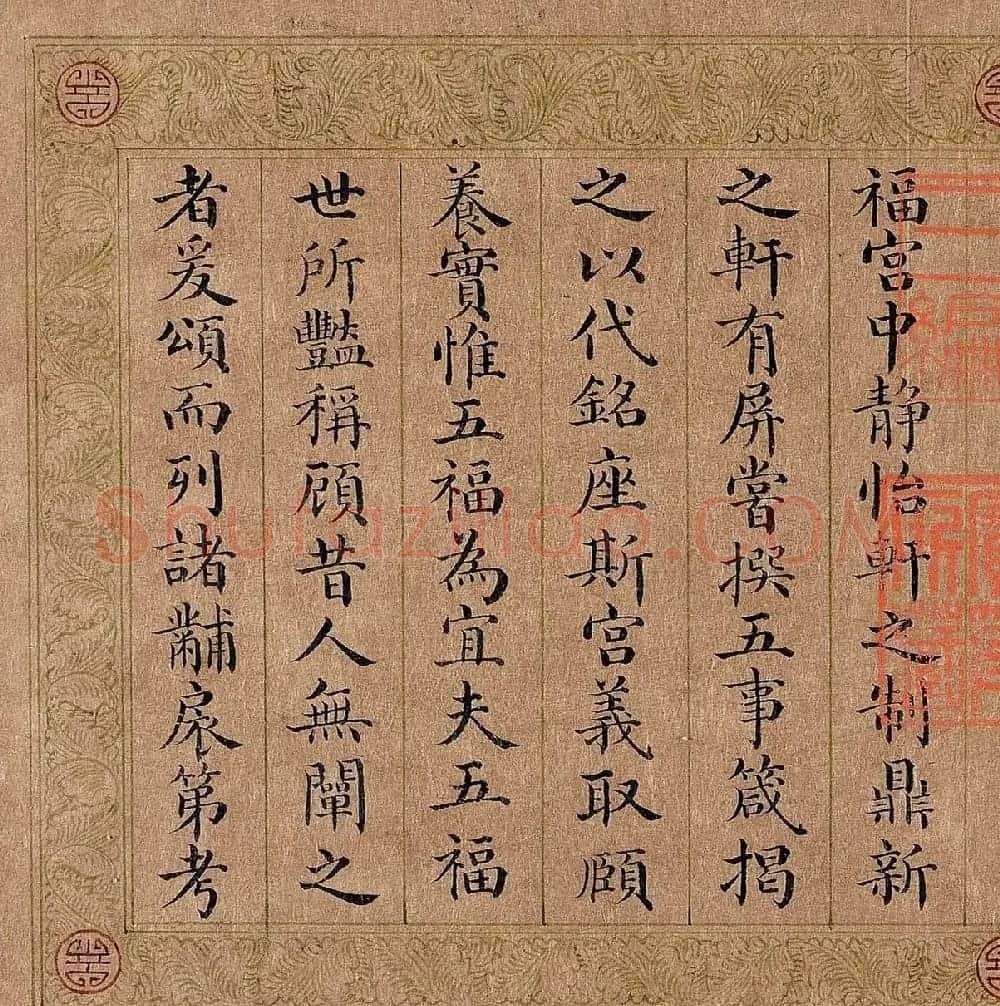 福宮中静怡軒之制鼎新
之軒有屏嘗撰五事箴揭
之以代銘座斯宮義取頤
養實惟五福為宜夫五福
世所豔稱顧昔人無闡之
者爰頌而列諸黼扆第考
Shufazidian.COM